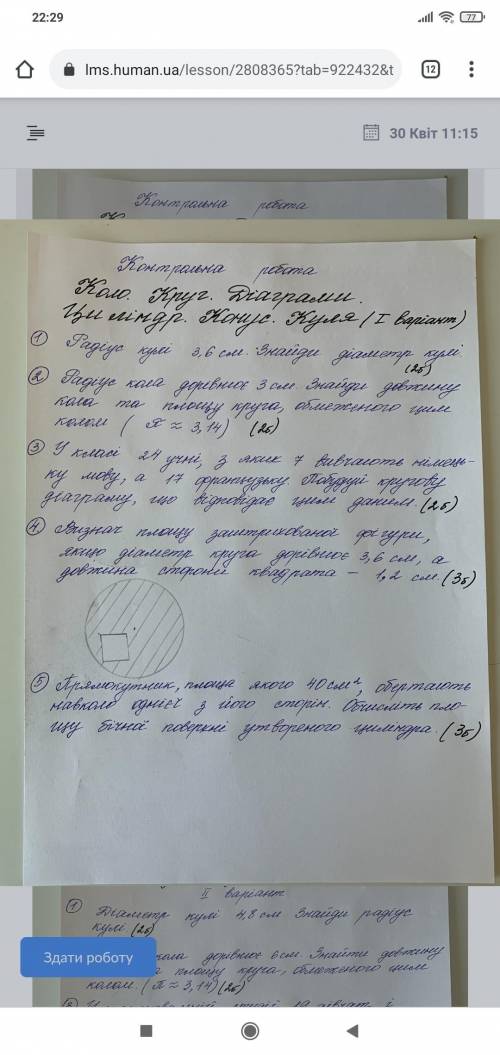 22:29
77
lms.human.ua/lesson/2808365?tab=922432&t
12
30 Квіт 11:15
Контрольна робота
Контрольна робота
Коло. Круг. Діаграми.
Циліндр. Конус. Куля (I варіант)
1 Радіус кулі 3,6 см. Знайди діаметр кулі.
(2б)
2 Радіус кола дорівнює 3 см. Знайди довжину
кола та площу круга, обмеженого цим
колом ( π ≈ 3,14) (2б)
3 У класі 24 учні, з яких 7 вивчають німець-
ку мову, а 17 французьку. Побудуй кругову
діаграму, що відповідає цим даним. (2б)
4 Визнач площу заштрихованої фігури,
якщо діаметр круга дорівнює 3,6 см, а
довжина сторони квадрата - 1,2 см. (3б)
5 Прямокутник, площа якого 40 см², обертають
навколо однієї з його сторін. Обчисліть пло-
щу бічної поверхні утвореного циліндра. (3б)
II варіант
1 Діаметр кулі 4,8 см Знайди радіус
кулі (2б)
кола дорівнює 6 см. Знайти довжину
та площу круга, обмеженого цим
колом. ( π ≈ 3,14) (2б)
Здати роботу